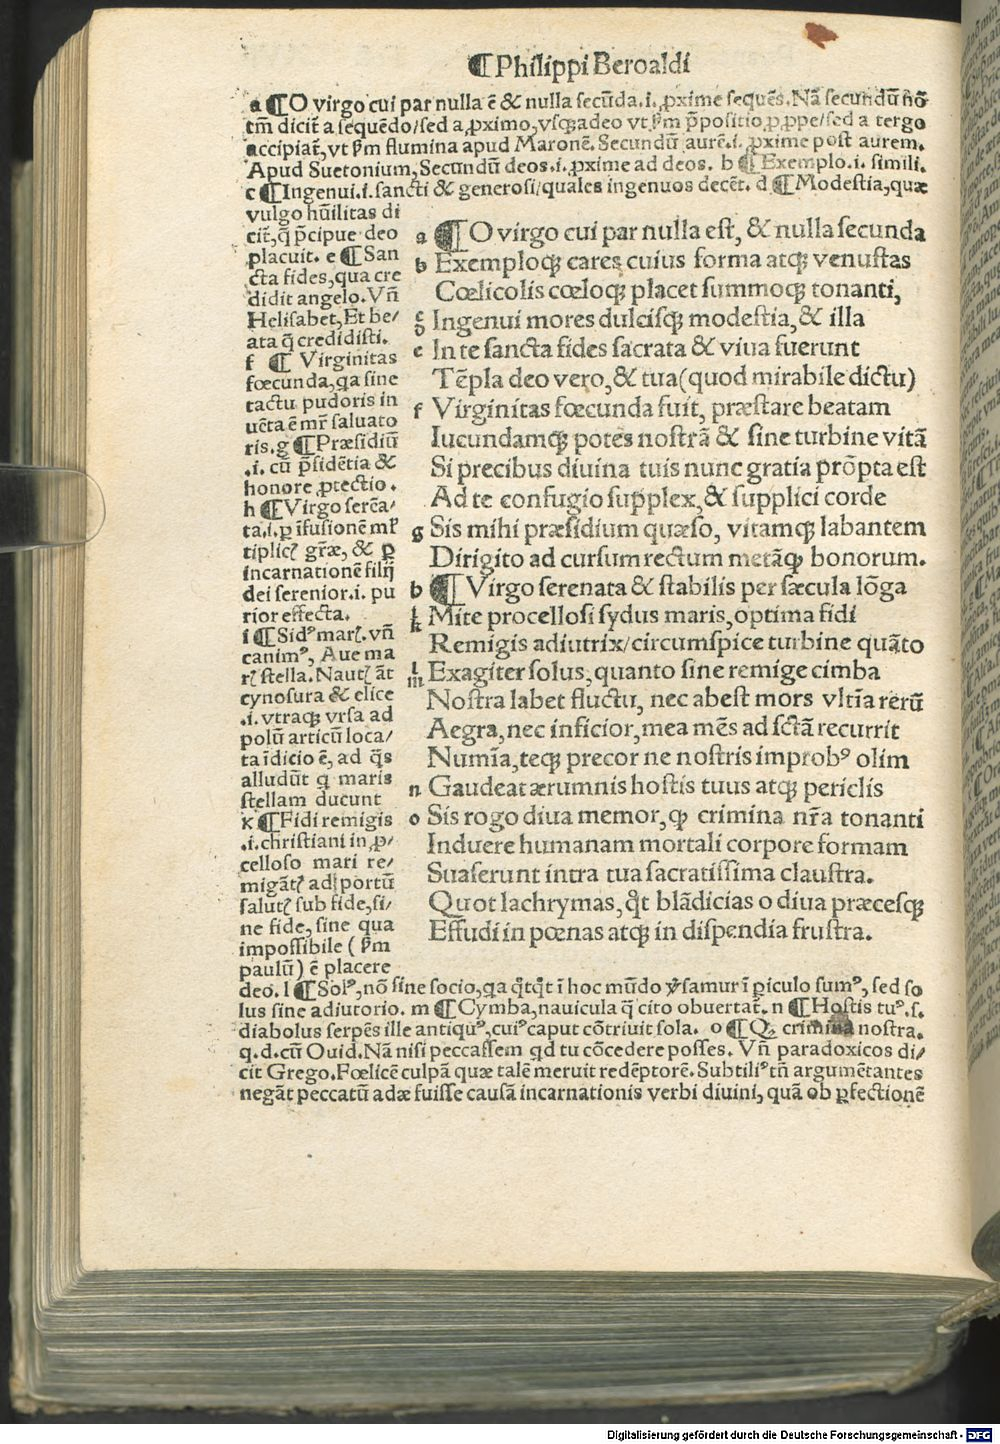 ¶Philippi Beroaldi
a ¶O virgo cui par nulla ē & nulla secūda.i.ꝓxime sequēs.Nā secundū nō
tm̄ dicit̄ a sequēdo/sed a,ꝓximo,vsqꝫadeo vt ẜm p̄positio,ꝓ,ppe/sed a tergo
accipiat̄,vt ẜm flumina apud Maronē.Secundū aurē.i.ꝓxime post aurem.
Apud Suetonium,Secundū deos.i.ꝓxime ad deos. b ¶Exemplo.i. simili.
c ¶Ingenui.i.sancti & generosi/quales ingenuos decēt. d ¶Modestia,quæ
vulgo hūilitas di
cit̄,q̄ p̄cipue deo
placuit. e ¶San
cta fides,qua cre
didit angelo.Vn̄
Helisabet,Et be/
ata q̄ credidisti.
f ¶ Virginitas
fœcunda,qa sine
tactu pudoris in
uēta ē mr̄ saluato
ris.g ¶Præsidiū
.i. cū p̄sidētia &
honore ,ptectio.
h ¶Virgo serēa/
ta.i.ꝑ īfusionē ml̓
tiplicꝭ gr̄æ, & ꝑ
incarnationē filij
dei serenior.i. pu
rior effecta.
i ¶Sidꝰ marꝭ. vn̄
canimꝰ, Aue ma
rꝭ stella. Nautꝭ āt
cynosura & elice
.i. vtraqꝫ vrsa ad
polū articū loca/
ta īdicio ē, ad q̄s
alludūt q maris
stellam ducunt
k ¶Fidi remigis
.i.christiani in ,p/
celloso mari re/
migātꝭ ad portū
salutꝭ sub fide,si/
ne fide, sine qua
impossibile ( ẜm
paulū) ē placere
a ¶O virgo cui par nulla est, & nulla secunda
b Exemploqꝫ cares cuius forma atqꝫ venustas
Cœlicolis cœloqꝫ placet summoqꝫ tonanti,
c Ingenui mores dulcisqꝫ modestia,& illa
e In te sancta fides sacrata & viua fuerunt
Tēpla deo vero,& tua(quod mirabile dictu)
f Virginitas fœcunda fuit, præstare beatam
Iucundamqꝫ potes nostrā & sine turbine vitā
Si precibus diuina tuis nunc gratia prōpta est
Ad te confugio supplex,& supplici corde
g Sis mihi præsidium quæso, vitamqꝫ labantem
Dirigito ad cursum rectum metāqꝫ bonorum.
h ¶Virgo serenata & stabilis per sæcula lōga
i k Mite procellosi sydus maris,optima fidi
Remigis adiutrix/circumspice turbine quāto
l m Exagiter solus,quanto sine remige cimba
Nostra labet fluctu, nec abest mors vltīa rerū
Aegra,nec inficior,mea mēs ad sctā recurrit
Numīa,teqꝫ precor ne nostris improbꝰ olim
n Gaudeat ærumnis hostis tuus atqꝫ periclis
o Sis rogo diua memor,qꝫ crimina nr̄a tonanti
Induere humanam mortali corpore formam
Suaserunt intra tua sacratissima claustra.
Quot lachrymas,qt̊ blādicias o diua præcesqꝫ
Effudi in pœnas atqꝫ in dispendia frustra.
deo. l ¶Solꝰ,nō sine socio,qa qt̊qt̄ ī hoc mūdo ꝟsamur ī ꝑiculo sumꝰ, sed so
lus sine adiutorio. m ¶Cymba,nauicula q̄ cito obuertat̄. n ¶Hostis tuꝰ.s.
diabolus serpēs ille antiquꝰ.cuiꝰcaput cōtriuit sola. o ¶Qꝫ crimina nostra.
q.d.cū Ouid.Nā nisi peccassem qd tu cōcedere posses. Vn̄ paradoxicos di/
cit Grego.Fœlicē culpā quæ talē meruit redēptorē.Subtiliꝰ tn̄ argumētantes
negāt peccatū adæ fuisse causā incarnationis verbi diuini, quā ob ꝑfectionē
Digitalisierung gefördert durch die Deutsche Forschungsgemeinschaft - DFG